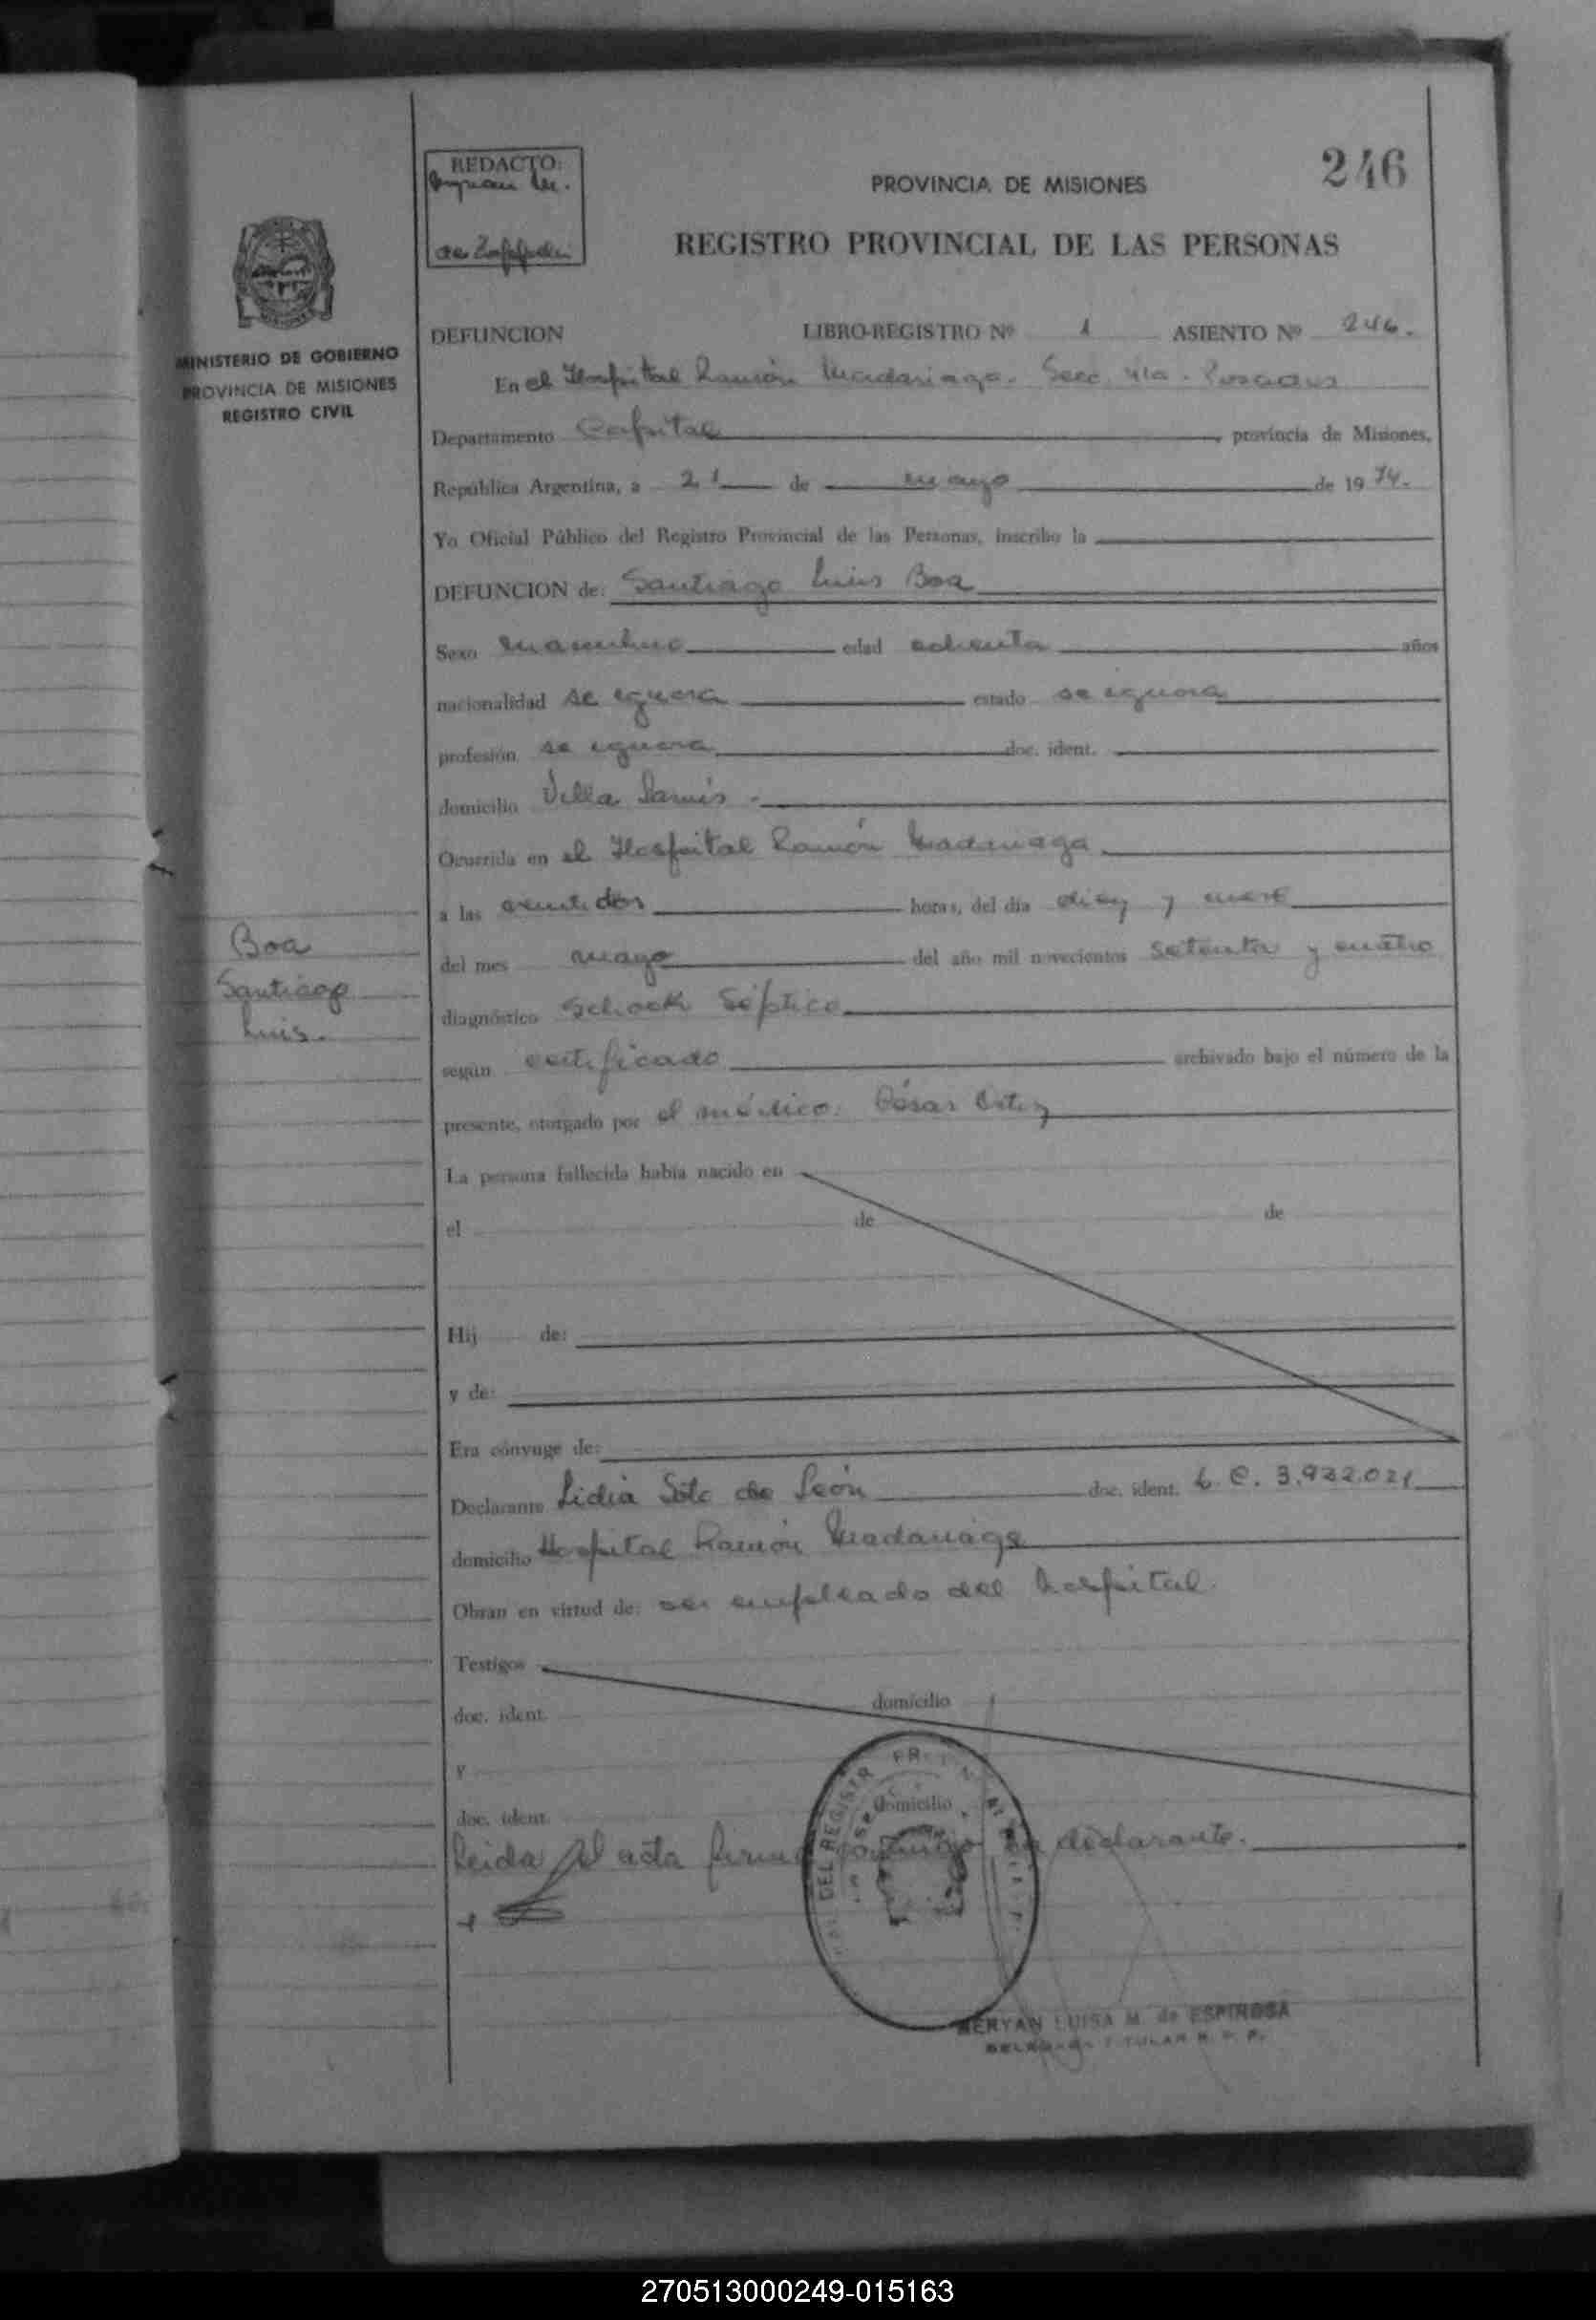 246
REDACTO:
PROVINCIA DE MISIONES
REGISTRO PROVINCIAL DE LAS PERSONAS
MINISTERIO DE GOBIERNO
PROVINCIA DE MISIONES
REGISTRO CIVIL
DEFUNCION LIBRO-REGISTRO Nº 1 ASIENTO Nº 246.
En el Hospital Ramón Madariaga. Secc. 4ta. Posadas
Departamento Capital, provincia de Misiones,
República Argentina, a 21 de mayo de 1974.
Yo Oficial Público del Registro Provincial de las Personas, inscribo la
DEFUNCION de: Santiago Luis Boa
Sexo masculino edad ochenta años
nacionalidad se ignora estado se ignora
profesión se ignora doc. ident.
domicilio Villa Lanús.
Ocurrida en el Hospital Ramón Madariaga
a las veintidos horas, del día diez y nueve
del mes mayo del año mil novecientos setenta y cuatro
Boa
Santiago
Luis.
diagnóstico Schock Séptico
según certificado archivado bajo el número de la
presente, otorgado por el médico: César Ortiz
La persona fallecida había nacido en
el de de
Hij de:
y de:
Era cónyuge de:
Declarante Lidia Soto de León doc. ident. L.C. 3.922.021
domicilio Hospital Ramón Madariaga
Obran en virtud de: ser empleado del hospital.
Testigos
doc. ident. domicilio
y
doc. ident. domicilio
Leida el acta firma conmigo la declarante.
MERYAN LUISA M. de ESPINOSA
TITULAR R. P. P.
270513000249-015163